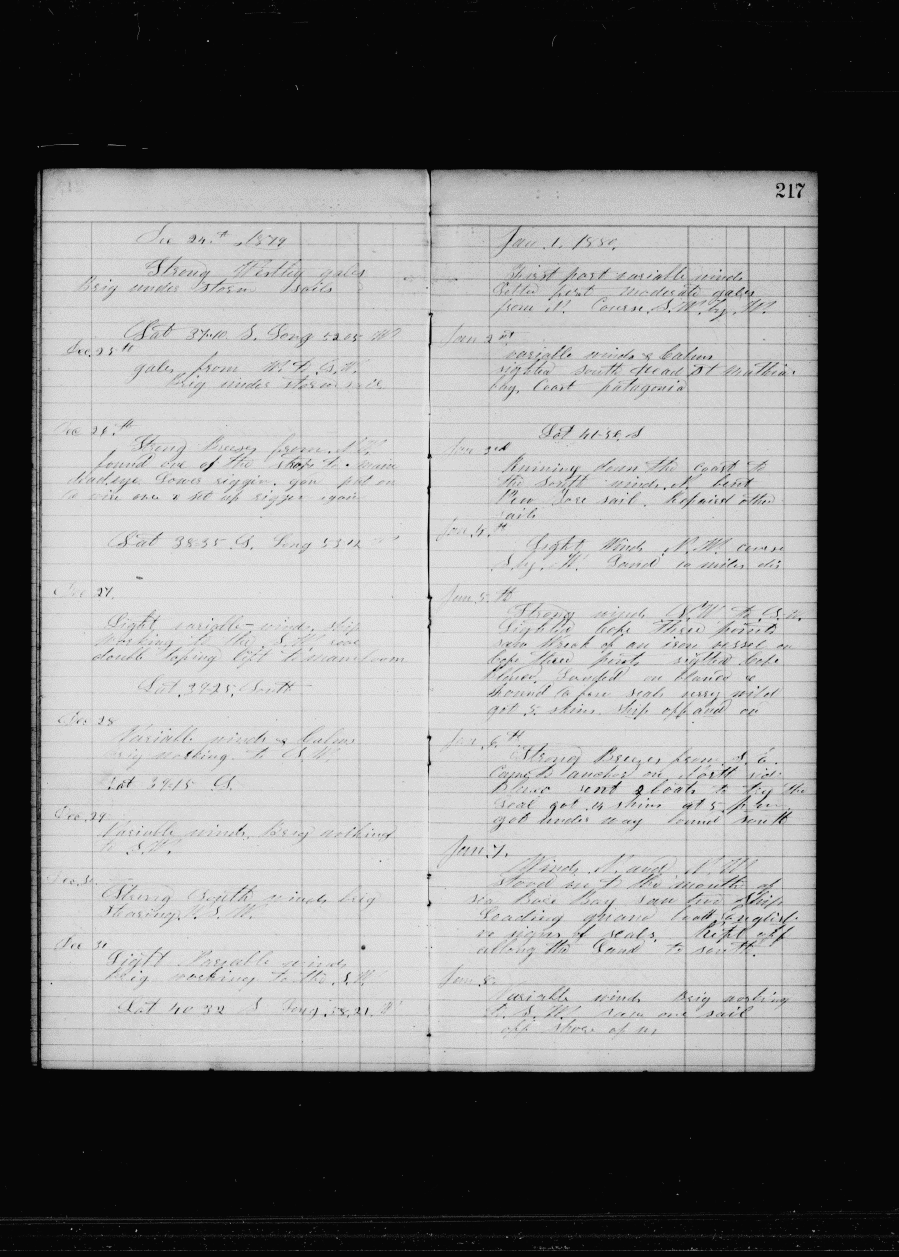 Dec 24th 1879
Strong Westley gales
Brig under storm sails
Lat 37-10 S. Long 52.05 W
Dec. 25th
gales from W to S.W.
Brig under storm sails
Dec 26th
Strong Breeze from
found one of the straps to Main
deadeye Lower riggin gon put on
a wire one & set up riggin again
Lat 38-35 S. Long 53-12 W
Dec 27.
Light variable winds ship
working to the S.W.
double toping lift to main boom
Lat 39-25 South
Dec 28
Variable winds & Calms
brig working to S.W.
Lat 39-15 S.
Dec. 29
Variable winds Brig working
to S.W.
Dec. 30
Strong South winds brig
stearing W.S.W.
Dec 31
Light Variable winds
Brig working to the S.W.
Lat 40-32 S Long. 58.21. W
217
Jan. 1. 1880.
First part variable winds
Latter part moderate gales
from N. Course S.W. by W.
Jan 2
variable winds & Calms
sighted South Head St Mathias
bay. Coast patagonia
Lat 41-50 S
Jan 3rd
Running down the coast to
the South winds N. bent
New fore sail. Repaired other
sails
Jan. 4th
Light Winds N.W. course
S. by W. Land 10 miles dis
Jan. 5th
Strong winds S.W to
Sighted Cape Three points
saw Wreck of an iron vessel on
Cape three points sighted Cape
Blanco. Landed on Blanco &
found a few seals very wild
got 5 skins. ship off and on
Jan. 6th
Strong Breezes from S. E.
Came to anchor on North side
Blanco sent 2 boats to try the
Seal got 13 skins at 5 p.m.
got under way bound south
Jan. 7.
Winds N. and N.W.
Stood in to the mouth of
Sea Bear Bay saw two Ships
Loading guano both English
no signs of seals. Kept off
along the Land to south.
Jan 8.
Variable winds Brig working
to S.W. saw one sail
off shore of us